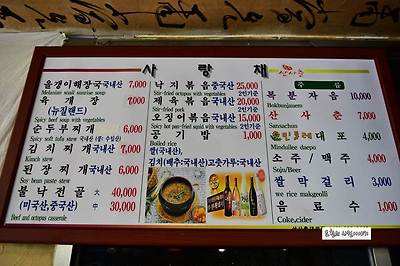 사랑채
올갱이해장국국내산 7,000
Melanian snail sunrise soup
육개장 7,000
(뉴질랜드)
Spicy beef soup with vegetables
순두부찌개 6,000
Spicy soft tofu stew
김치찌개국내산 7,000
Kimch stew
된장찌개국내산 6,000
Soy bean paste stew
불낙전골 大 40,000
(미국산,중국산) 中 30,000
Beef and octopus casserole
낙지볶음중국산 25,000
Stir-fried octopus with vegetables 2인기준
제육볶음국내산 20,000
Stir-fried pork 2인기준
오징어볶음국내산 15,000
Spicy hot pan-fried squid with vegetables 2인기준
공기밥 1,000
Boiled rice
쌀(국내산),
김치(배추:국내산)고춧가루:국내산
산사춘
복분자음 10,000
Bokbunjaeum
산사춘 7,000
Sansachun
대포 4,000
Mindullee daepo
소주/맥주 4,000
Soju/Beer
쌀막걸리 3,000
we rice makgeolli
음료수 1,000
Coke,cider